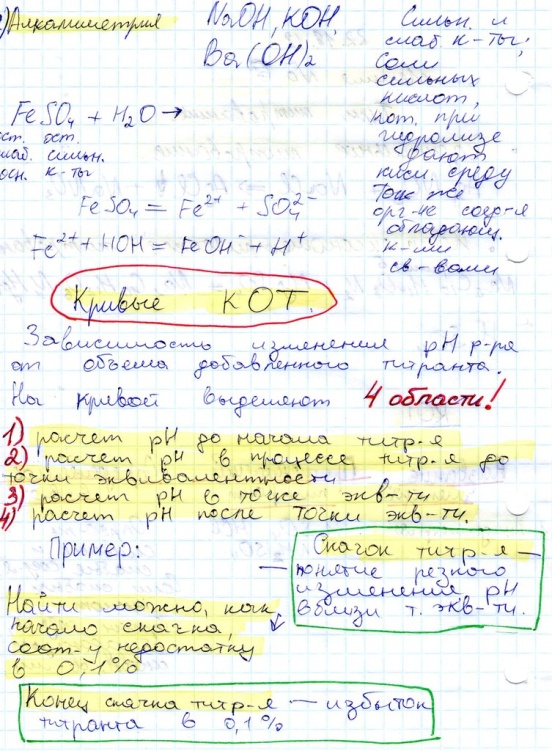 ) Алкалиметрия
NaOH, KOH,
Ba(OH)₂
Сильн. и
слаб. к-ты;
Соли
сильных
кислот,
кот. при
гидролизе
дают
кисл. среду
Так же
орг-ие соер-я
обладающ.
к-ми
св-вами
FeSO₄ + H₂O →
ост. ост.
слаб. сильн.
осн. к-ты
FeSO₄ = Fe²⁺ + SO₄²⁻
Fe²⁺ + HOH = FeOH⁻ + H⁺
Кривые КОТ.
Зависимость изменения pH р-ра
от объема добавленного титранта.
На кривой выделяют 4 области!
1) расчет pH до начала титр-я
2) расчет pH в процессе титр-я до
точки эквивалентности
3) расчет pH в точке экв-ти
4) расчет pH после точки экв-ти.
Пример:
Скачок титр-я —
понятие резкого
изменения pH
вблизи т. экв-ти.
Найти можно, как
начало скачка,
соот-у недостатку
в 0,1%
Конец скачка титр-я — избыток
титранта в 0,1%